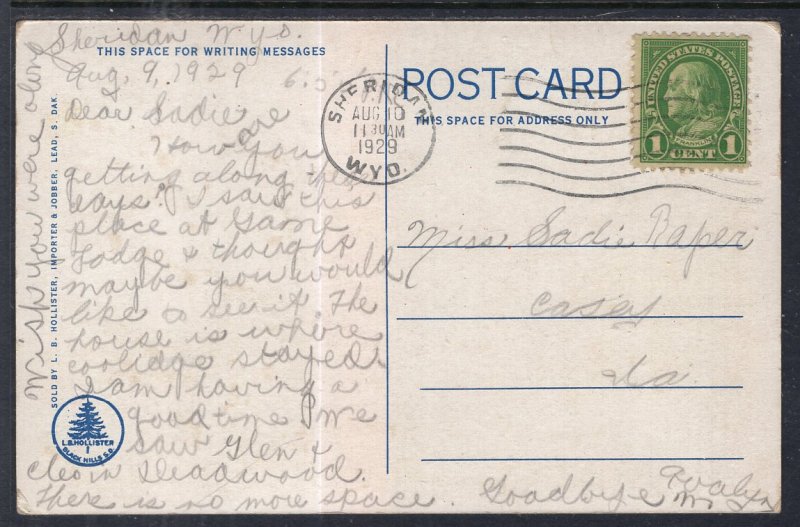 Sheridan Wyo.
THIS SPACE FOR WRITING MESSAGES
Aug. 9, 1929
Dear Sadie
How are you
getting along these
days? I said this
place at Game
Lodge & thought
maybe you would
like to see it. The
house is where
coolidge stayed.
I am having a
good time. We
saw Glen &
Cleo in Deadwood.
There is no more space. Goodbye
Wish you were along
SOLD BY L. B. HOLLISTER, IMPORTER & JOBBER, LEAD, S. DAK.
L.B.HOLLISTER
1
BLACK HILLS S.D.
SHERIDAN
AUG 10
11 30 AM
1929
WYO.
POST CARD
THIS SPACE FOR ADDRESS ONLY
UNITED STATES POSTAGE
FRANKLIN
1 CENT 1
Miss Sadie Raper
Casey
Ia.